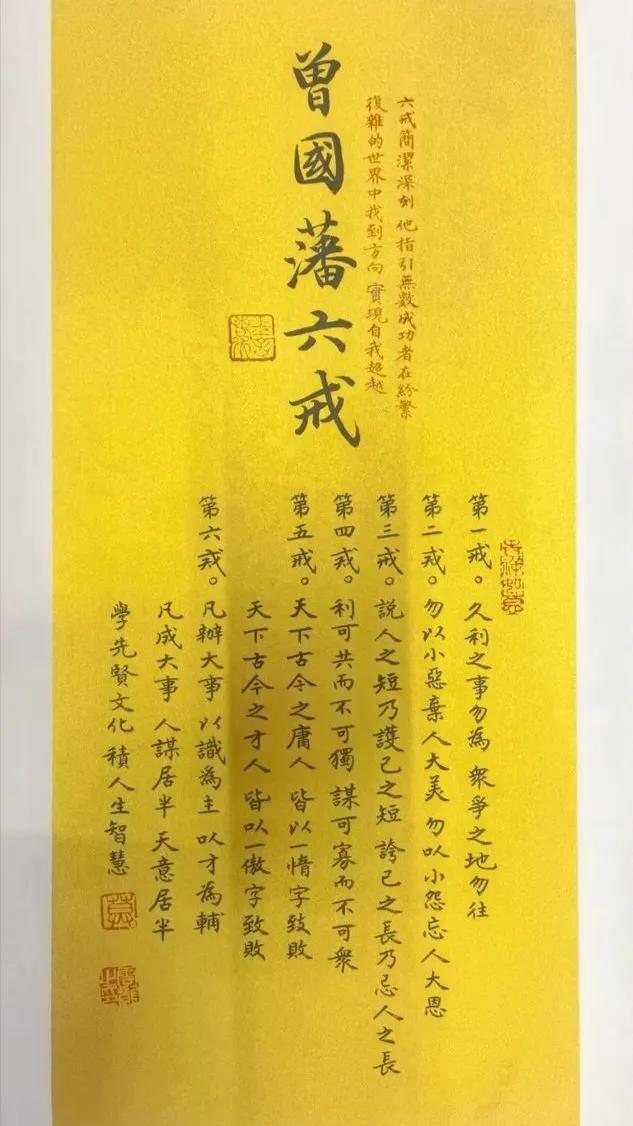 曾國藩六戒
六戒簡潔深刻 他指引無數成功者在紛繁
復雜的世界中找到方向 實現自我超越
第一戒。久利之事勿為 衆爭之地勿往
第二戒。勿以小惡棄人大美 勿以小怨忘人大恩
第三戒。説人之短乃護己之短 誇己之長乃忌人之長
第四戒。利可共而不可獨 謀可寡而不可衆
第五戒。天下古今之庸人 皆以一惰字致敗
天下古今之才人 皆以一傲字致敗
第六戒。凡辦大事 以識為主 以才為輔
凡成大事 人謀居半 天意居半
學先賢文化 積人生智慧